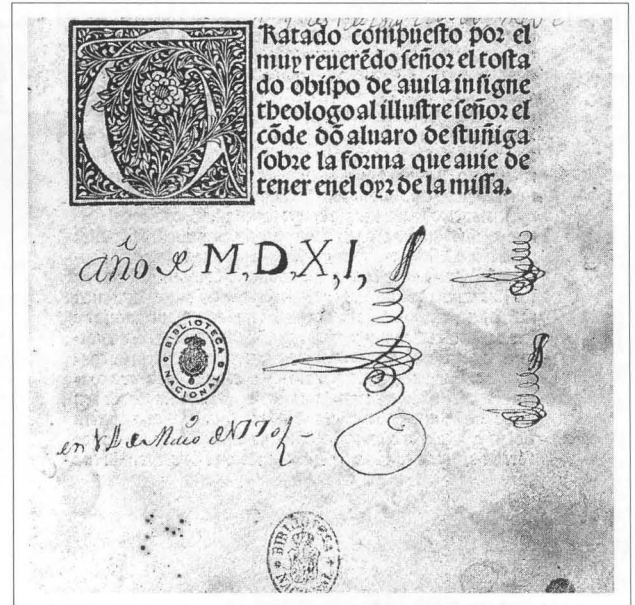 Tratado compuesto por el
muy reuerẽdo señor el tosta
do obispo de auila insigne
theologo al illustre señor el
cõde dõ aluaro destuñiga
sobre la forma que auie de
tener enel oyr de la missa.
año de M,D,X,I,
BIBLIOTECA NACIONAL
en
BIBLIOTECA